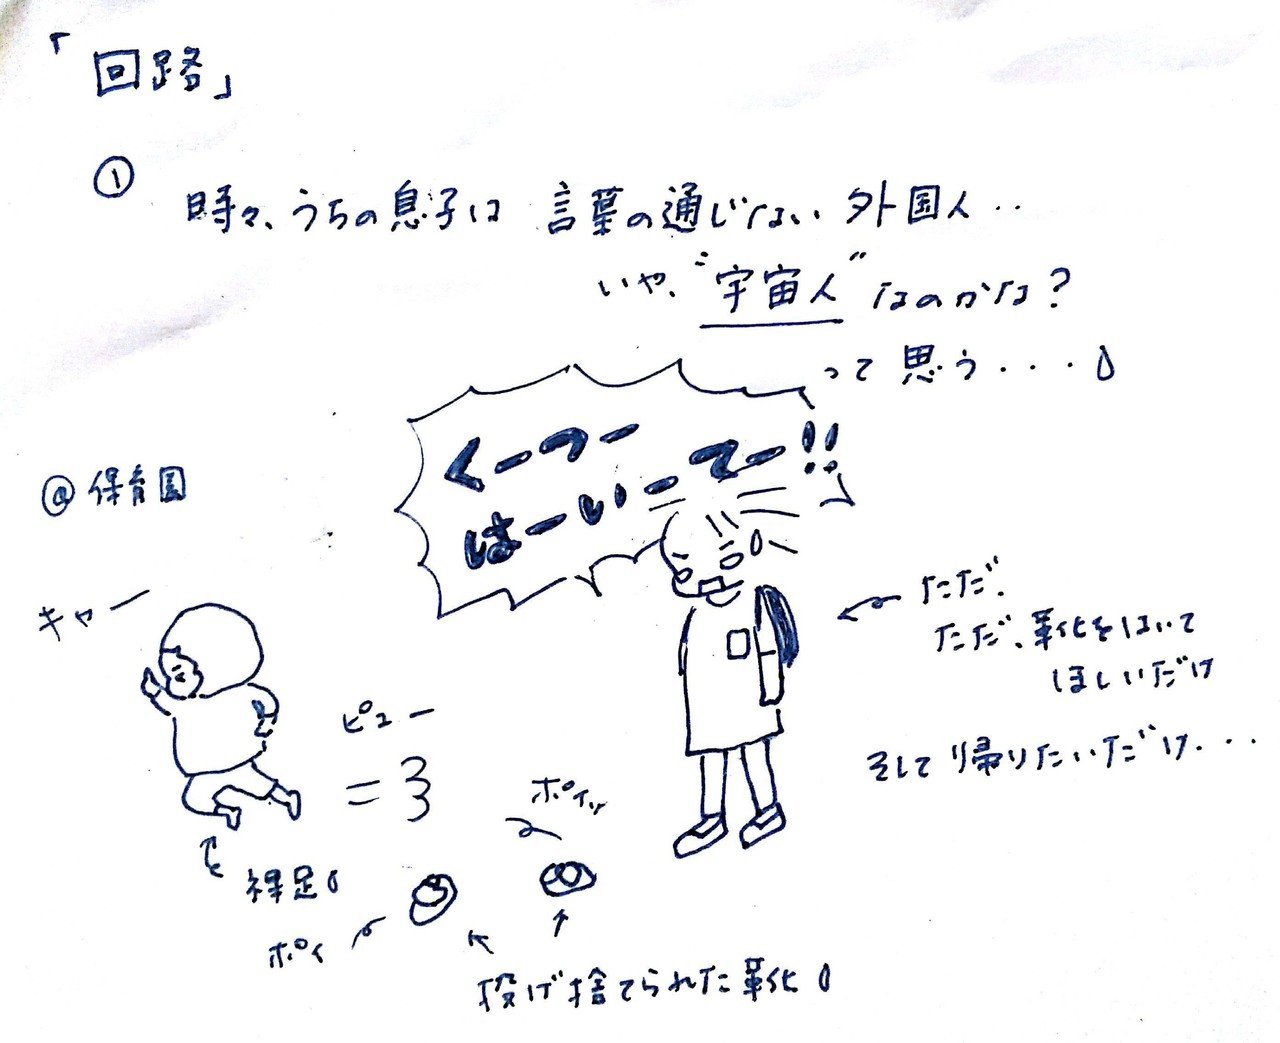 「回路」
①
時々、うちの息子は 言葉の通じない 外国人‥
いや、“宇宙人”なのかな?
って思う・・・
くーつー
はーいーてー!!
@保育園
キャー
ピュー
ただ、
ただ、靴をはいて
ほしいだけ
そして帰りたいだけ・・・
ポイッ
裸足
ポイ
投げ捨てられた靴